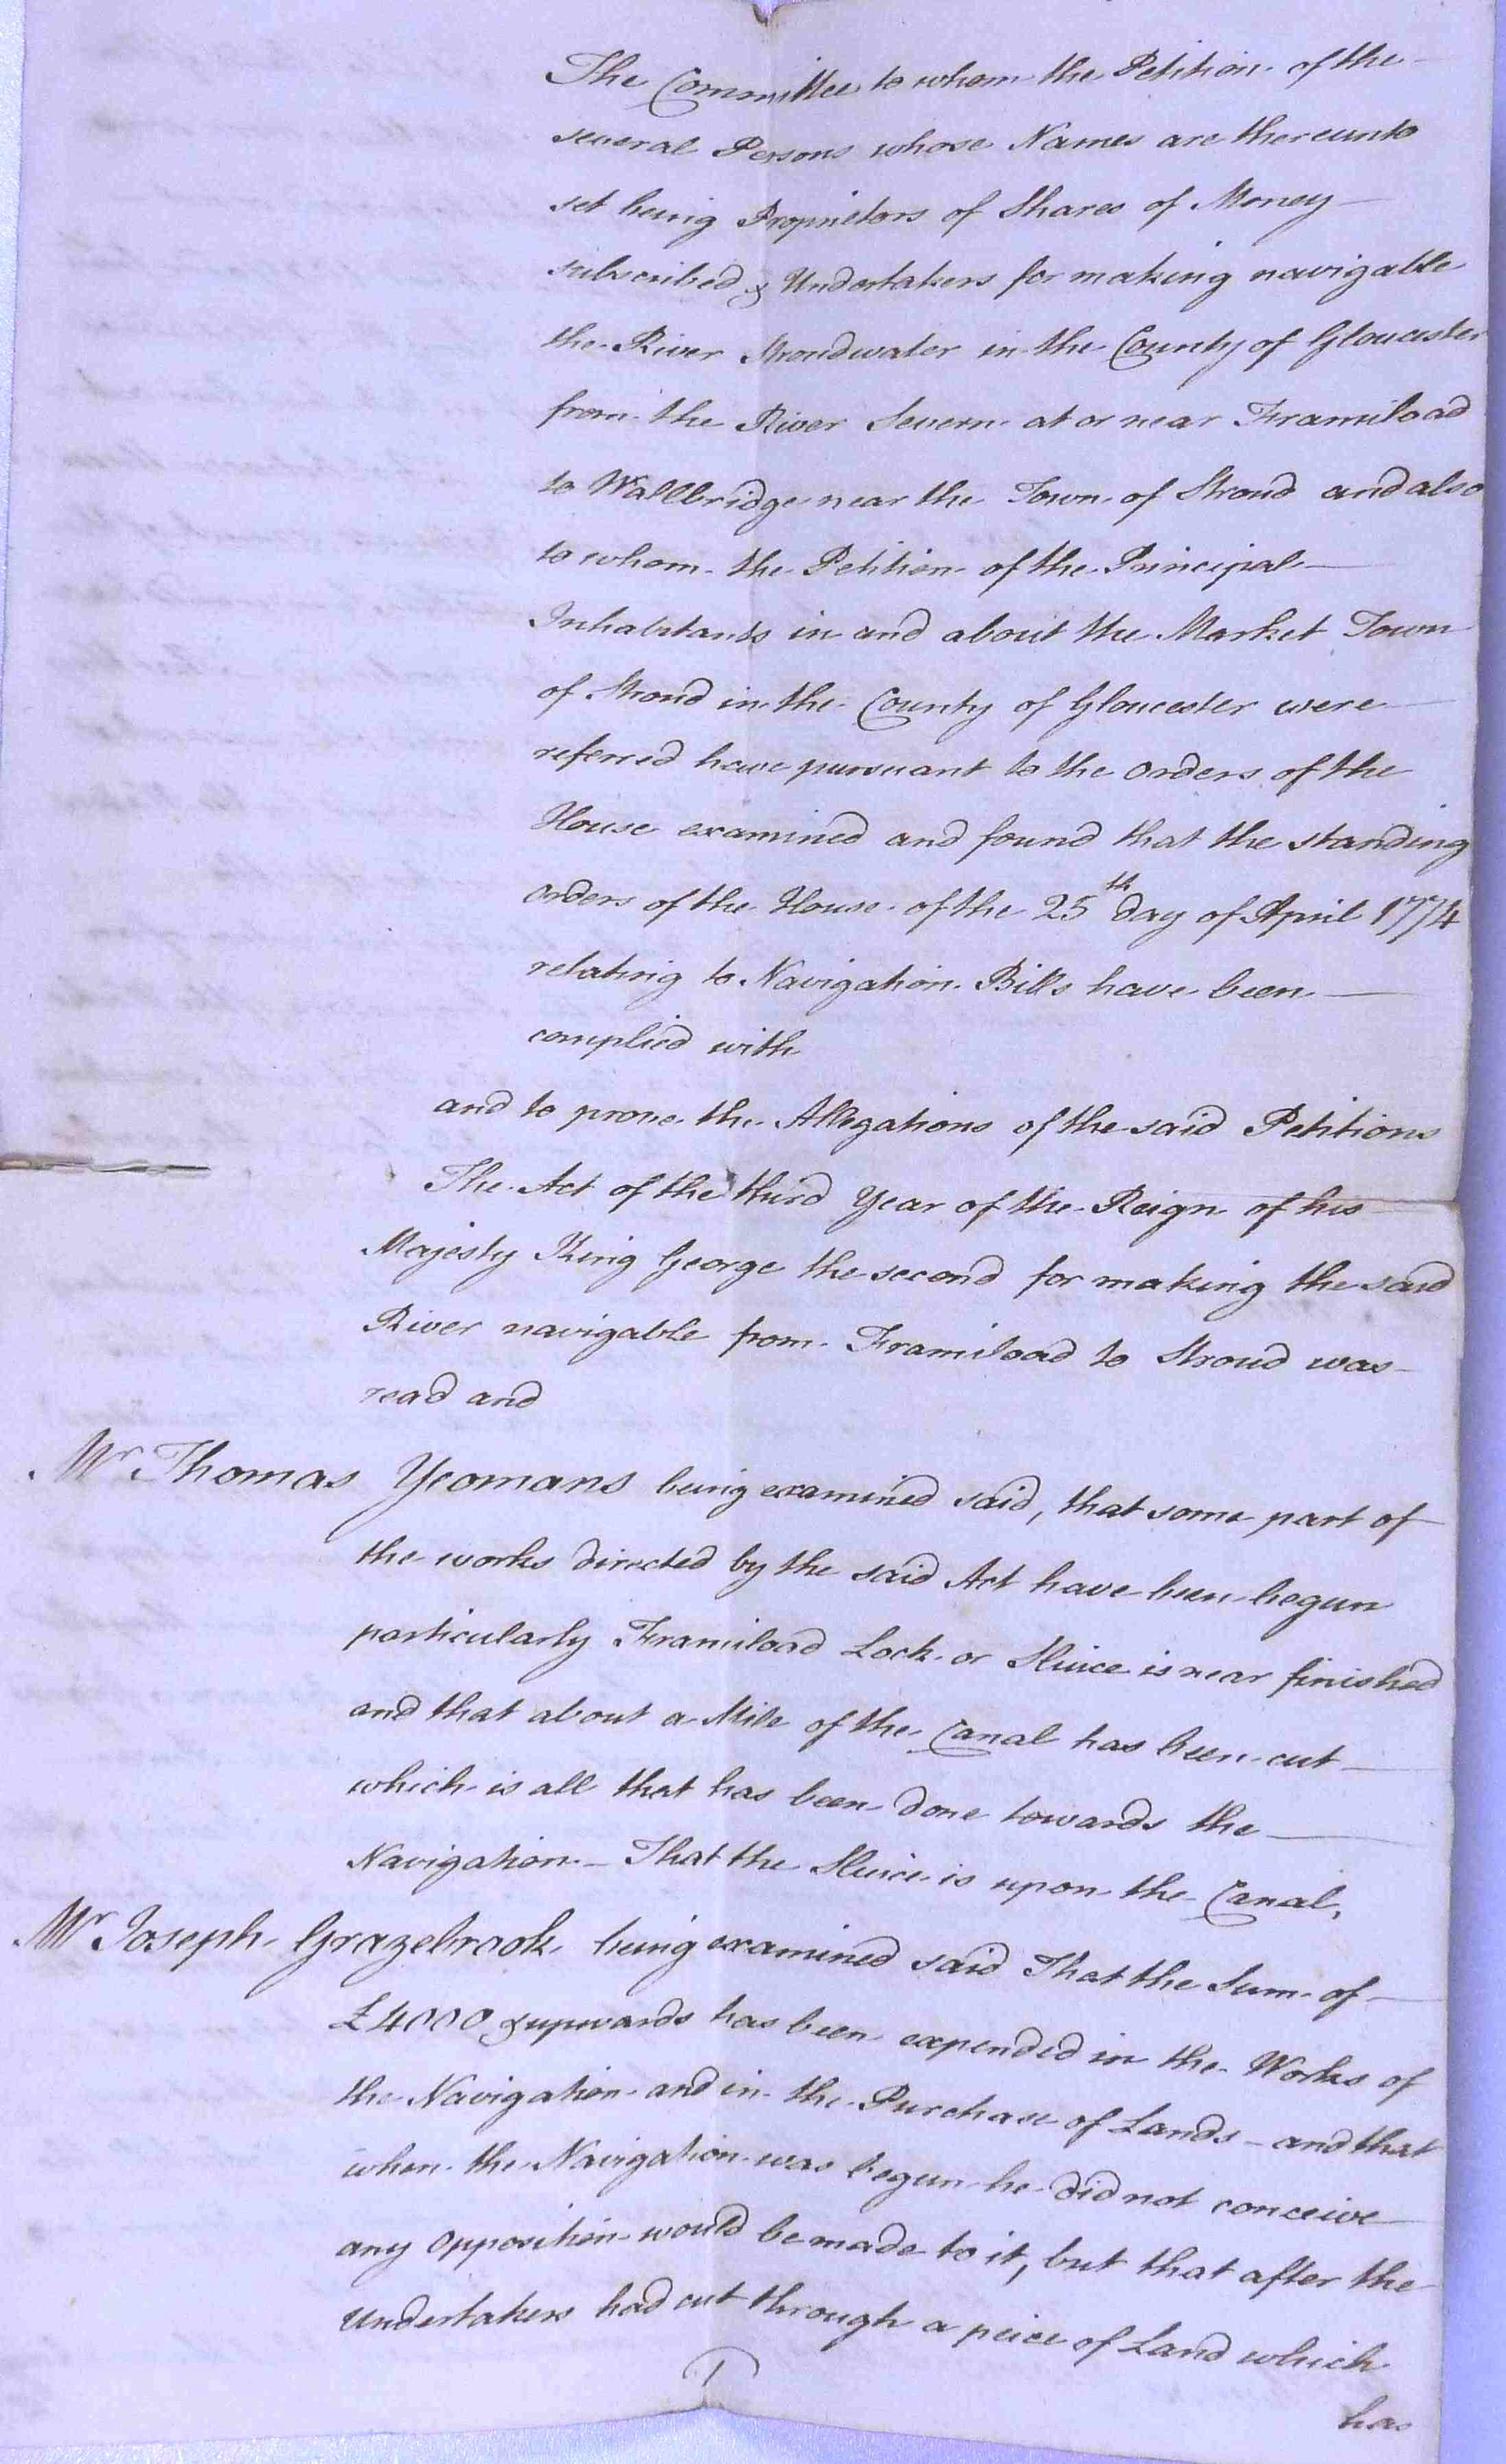 The Committee to whom the Petition of the
several Persons whose Names are thereunto
set being Proprietors of Shares of Money
subscribed & Undertakers for making navigable
the River Stroudwater in the County of Gloucester
from the River Severn at or near Framiload
to Wallbridge near the Town of Stroud and also
to whom the Petition of the Principal
Inhabitants in and about the Market Town
of Stroud in the County of Gloucester were
referred have pursuant to the orders of the
House examined and found that the standing
orders of the House of the 25th day of April 1774
relating to Navigation Bills have been
complied with
and to prove the Allegations of the said Petitions
The Act of the third Year of the Reign of his
Majesty King George the second for making the said
River navigable from Framiload to Stroud was
read and
Mr Thomas Yeomans being examined said, that some part of
the works directed by the said Act have been begun
particularly Framiload Lock or Sluice is near finished
and that about a Mile of the Canal has been cut
which is all that has been done towards the
Navigation - That the Sluice is upon the Canal,
Mr Joseph Grazebrook being examined said That the Sum of
£4000 & upwards has been expended in the Works of
the Navigation and in the Purchase of Lands - and that
when the Navigation was begun he did not conceive
any opposition would be made to it, but that after the
Undertakers had cut through a peice of Land which
1
has